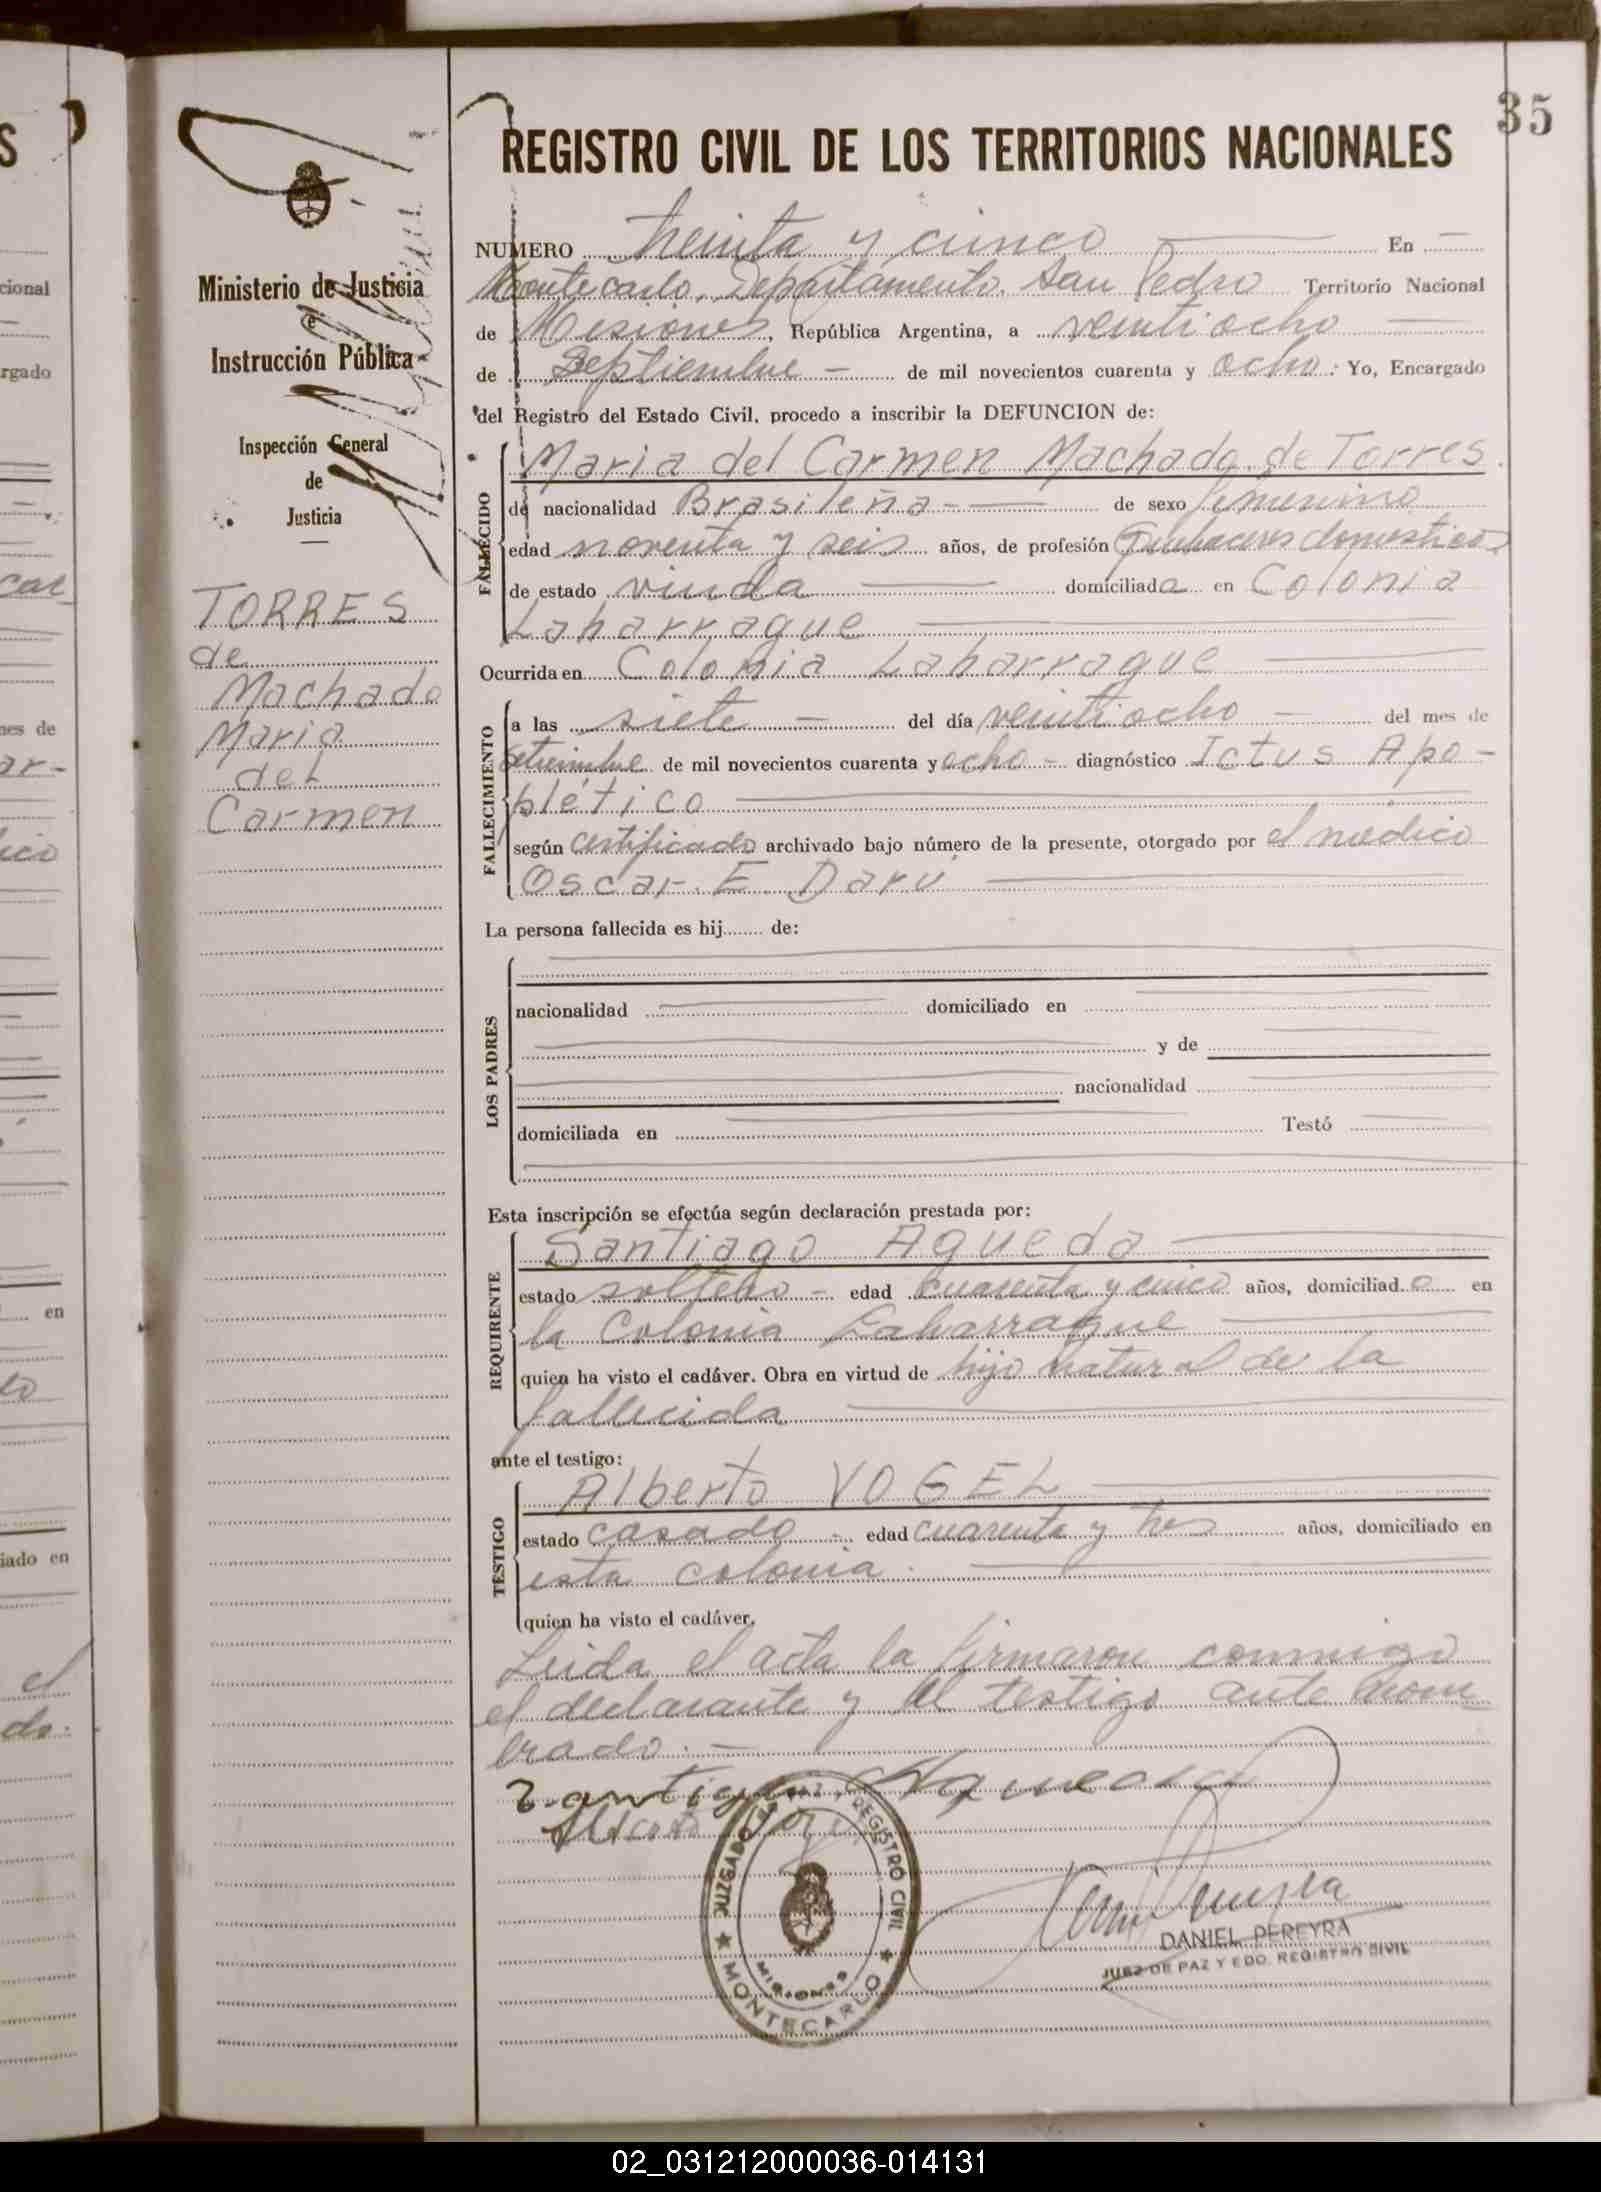 35
REGISTRO CIVIL DE LOS TERRITORIOS NACIONALES
Ministerio de Justicia
e
Instrucción Pública
Inspección General
de
Justicia
TORRES
de
Machado
Maria
del
Carmen
NUMERO treinta y cinco En
Montecarlo, Departamento San Pedro Territorio Nacional
de Misiones, República Argentina, a veintiocho
de Septiembre de mil novecientos cuarenta y ocho. Yo, Encargado
del Registro del Estado Civil, procedo a inscribir la DEFUNCION de:
FALLECIDO
Maria del Carmen Machado de Torres.
de nacionalidad Brasileña de sexo femenino
edad noventa y seis años, de profesión Quehaceres domesticos
de estado viuda domiciliada en Colonia
Laharrague
Ocurrida en Colonia Laharrague
FALLECIMIENTO
a las siete del día veintiocho del mes de
Setiembre de mil novecientos cuarenta y ocho diagnóstico Ictus Apo-
plético
según certificado archivado bajo número de la presente, otorgado por el médico
Oscar E. Darú
La persona fallecida es hij........ de:
LOS PADRES
nacionalidad domiciliado en
y de
nacionalidad
domiciliada en Testó
Esta inscripción se efectúa según declaración prestada por:
REQUIRENTE
Santiago Agueda
estado soltero edad cuarenta y cinco años, domiciliado en
la Colonia Laharrague
quien ha visto el cadáver. Obra en virtud de hijo natural de la
fallecida
ante el testigo:
TESTIGO
Alberto VOGEL
estado casado edad cuarenta y tres años, domiciliado en
esta colonia.
quien ha visto el cadáver.
Leida el acta la firmaron conmigo
el declarante y el testigo ante nom
brado.-
Santiago Agueda
JUZGADO DE PAZ Y REGISTRO CIVIL
MISIONES
★ MONTECARLO ★
DANIEL PEREYRA
JUEZ DE PAZ Y EDO. REGISTRO CIVIL
S
cional
rgado
nes de
ar-
ico
en
iado en
el
do.
02_031212000036-014131